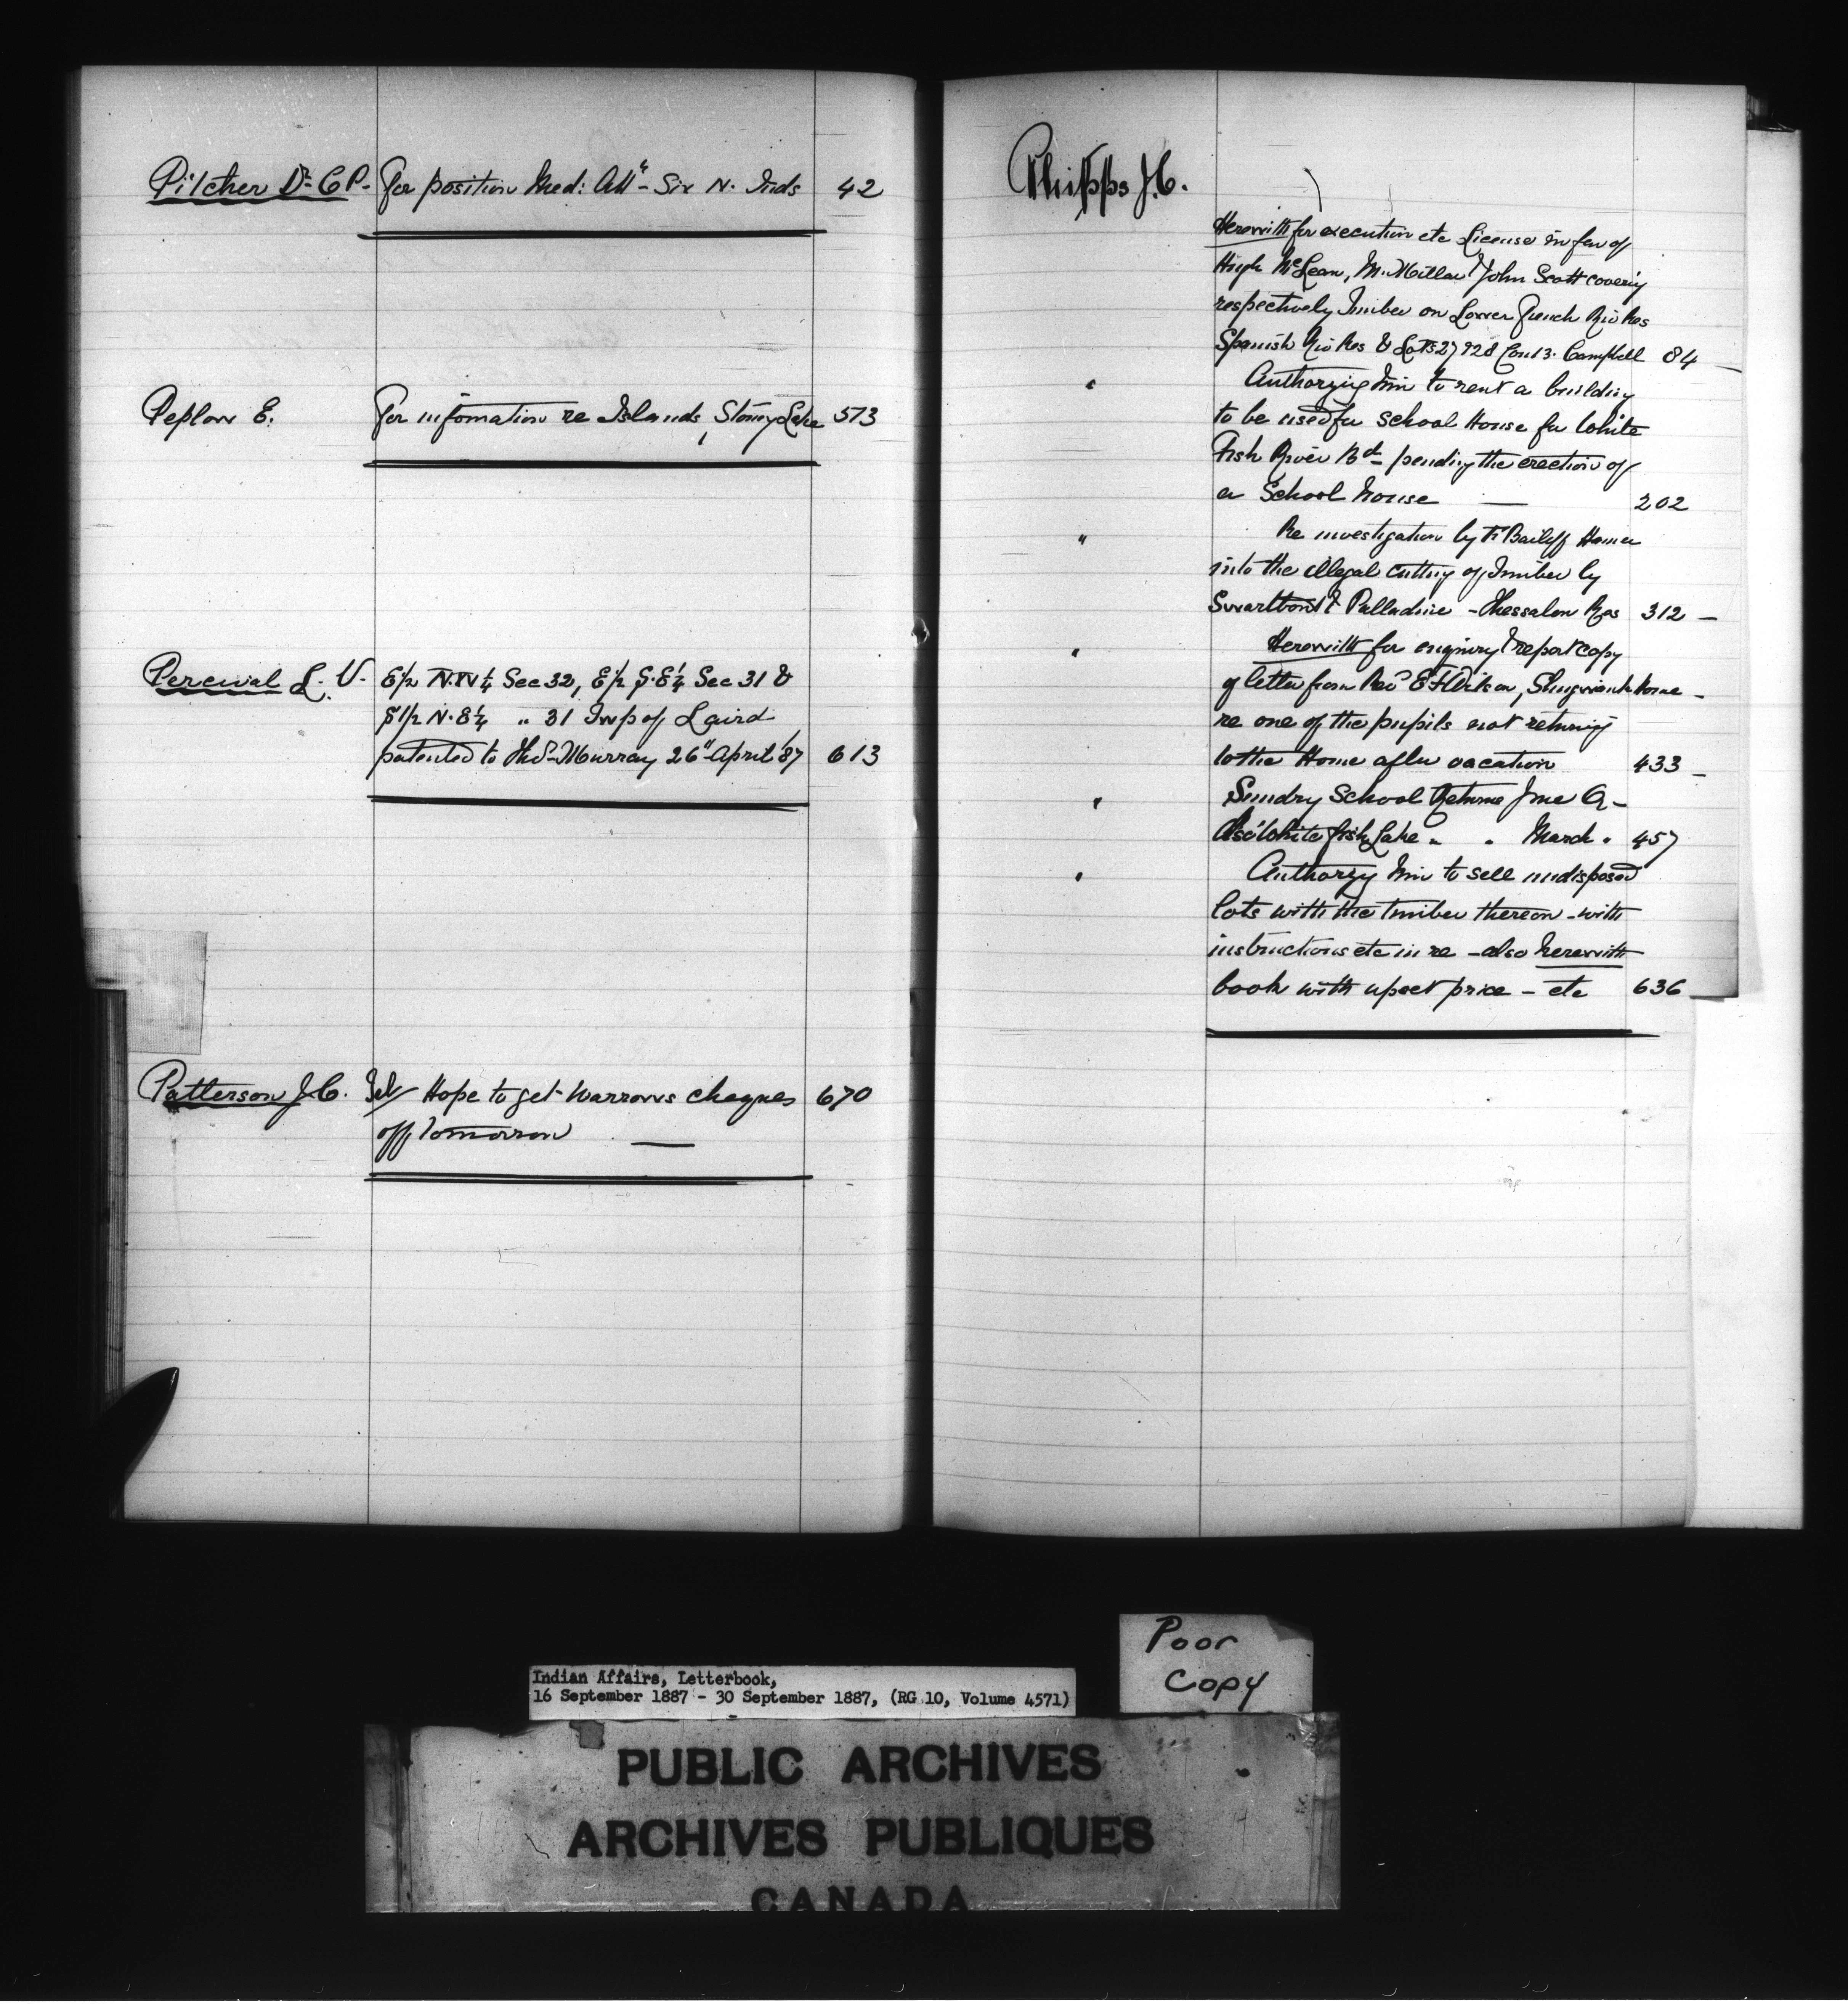 Pilcher Dr C P - For position Med: Attt - Six N. Inds 42
Peplow E. For infomation re Islands, Stoney Lake 573
Percival L. V. E1/2 N.W 1/4 Sec 32, E1/2 S.E 1/4 Sec 31 &
S1/2 N.E 1/4 " 31 Twp of Laird
patented to Thos Murray 26" April '87 613
Patterson J.C. Tel/ Hope to get Warrows cheques 670
off Tomorrow —
Phipps J.C.
Herewith for execution etc License in fav of
Hugh McLean, M. Millar & John Scott coverig
respectively Timber on Lower French Riv Res
Spanish Riv Res & Lots 27 & 28 Con 13. Campbell 84 -
" Authorzing him to rent a building
to be used for School House for White
Fish River Bd pending the erection of
a School house — 202
" Re investigation by Fst Bailiff Hamer
into the illegal cutting of Timber by
Swartbout & Palladine - Thessalon Res 312 -
" Herewith for enquiry & report copy
of letter from Revd E F Wilson, Shingwauk Home -
re one of the pupils not returnig
to the Home after vacation 433 -
" Sundry School Returns June Q -
Also White fish Lake " " March " 457
" Authorzg him to sell undisposed
lots with the timber thereon - with
instructions etc in re - also herewith
book with upset price - etc 636
Poor
Copy
Indian Affairs, Letterbook,
16 September 1887 - 30 September 1887, (RG 10, Volume 4571)
PUBLIC ARCHIVES
ARCHIVES PUBLIQUES
CANADA